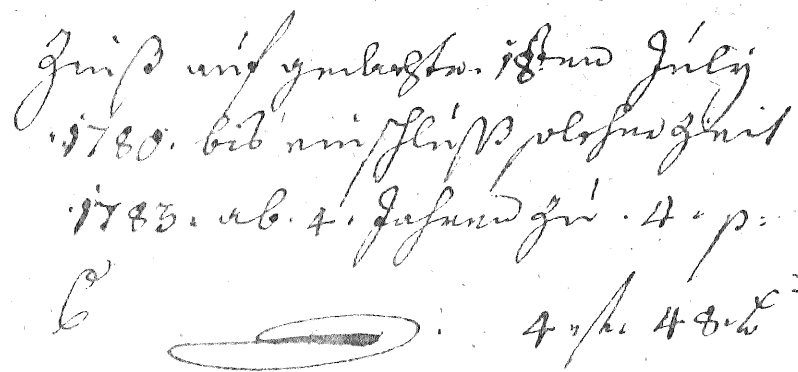 Zinß auf gedachte. 18ten July
1780. bis einschlüß solcher Zeit
1783. ab. 4. Jahren zu. 4. p:
C
4. f. 48. x